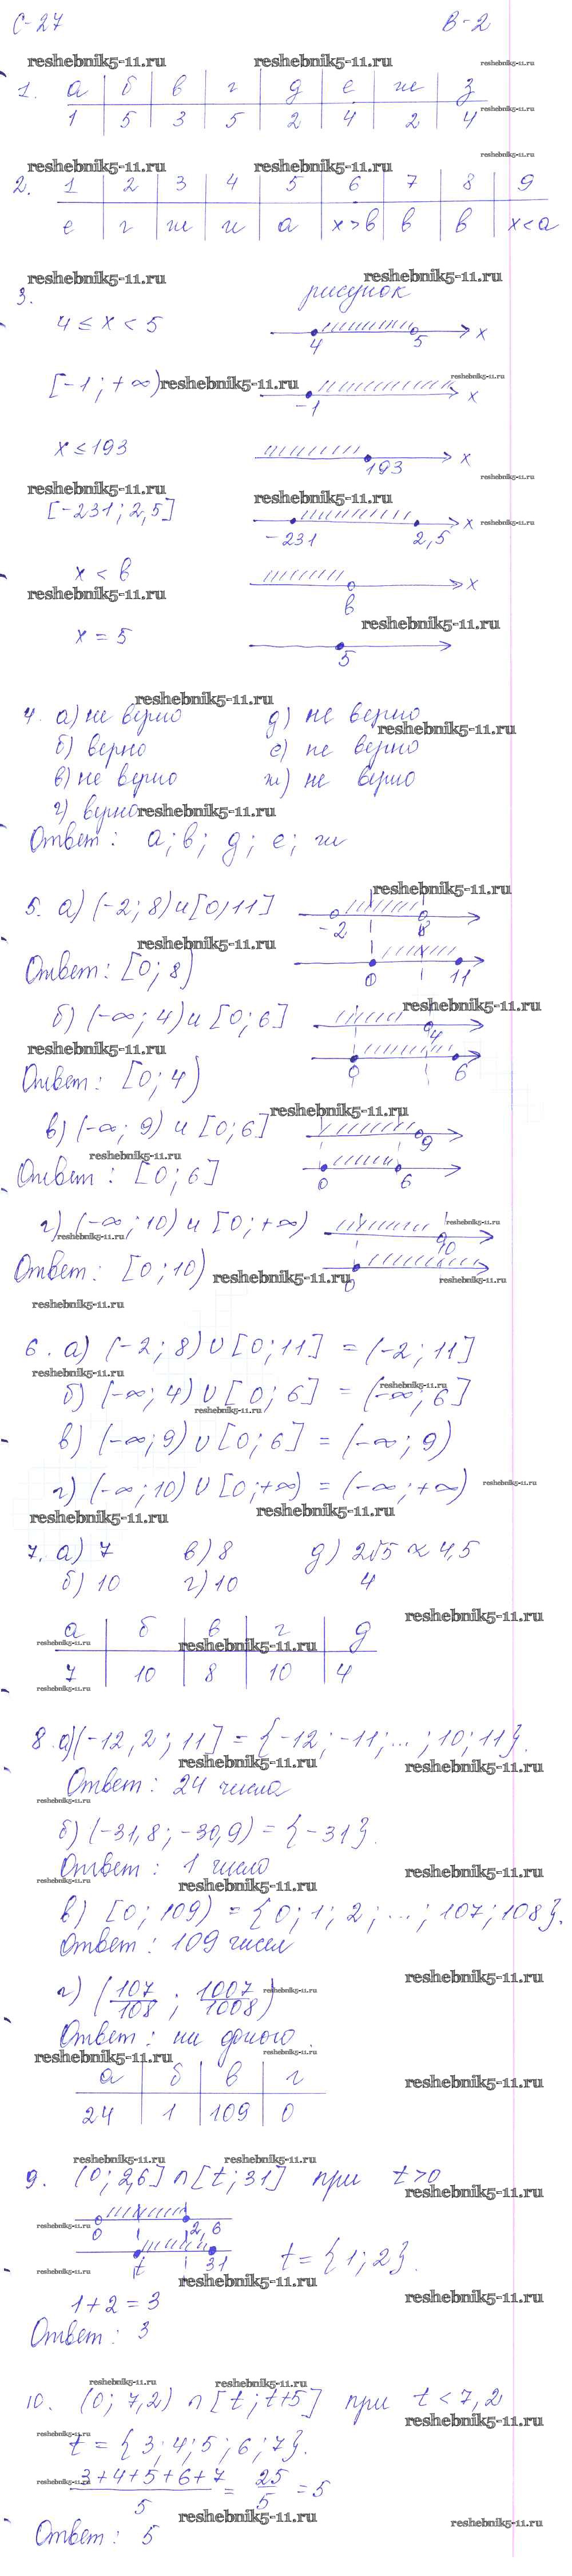 С-27 В-2
reshebnik5-11.ru reshebnik5-11.ru reshebnik5-11.ru
1. а | б | в | г | д | е | ж | з
1 | 5 | 3 | 5 | 2 | 4 | 2 | 4
reshebnik5-11.ru
reshebnik5-11.ru reshebnik5-11.ru reshebnik5-11.ru
2. 1 | 2 | 3 | 4 | 5 | 6 | 7 | 8 | 9
е | г | ж | и | а | x>b | б | в | x<a
reshebnik5-11.ru reshebnik5-11.ru
3. рисунок
4 ≤ x < 5 4 5 x
[-1; +∞) reshebnik5-11.ru -1 x reshebnik5-11.ru
x ≤ 193 193 x
reshebnik5-11.ru reshebnik5-11.ru reshebnik5-11.ru
[-231; 2,5] -231 2,5 x reshebnik5-11.ru
x < b b x
reshebnik5-11.ru reshebnik5-11.ru
x = 5 5
reshebnik5-11.ru
4. а) не верно д) не верно
reshebnik5-11.ru
б) верно е) не верно
в) не верно ж) не верно
г) верно reshebnik5-11.ru
Ответ: а; в; д; е; ж
reshebnik5-11.ru
5. а) (-2; 8) и [0; 11] -2 8
reshebnik5-11.ru
Ответ: [0; 8) 0 11
reshebnik5-11.ru
б) (-∞; 4) и [0; 6] 4
reshebnik5-11.ru
Ответ: [0; 4) 0 6
reshebnik5-11.ru
в) (-∞; 9) и [0; 6] 9
reshebnik5-11.ru
Ответ: [0; 6] 0 6
г) (-∞; 10) и [0; +∞) 10
reshebnik5-11.ru reshebnik5-11.ru
Ответ: [0; 10) reshebnik5-11.ru 0 reshebnik5-11.ru
reshebnik5-11.ru
6. а) (-2; 8) ∪ [0; 11] = (-2; 11]
reshebnik5-11.ru reshebnik5-11.ru
б) (-∞; 4) ∪ [0; 6] = (-∞; 6]
reshebnik5-11.ru
в) (-∞; 9) ∪ [0; 6] = (-∞; 9)
г) (-∞; 10) ∪ [0; +∞) = (-∞; +∞)
reshebnik5-11.ru
reshebnik5-11.ru reshebnik5-11.ru
7. а) 7 в) 8 д) 2√5 ≈ 4,5
б) 10 г) 10 4
reshebnik5-11.ru
а | б | в | г | д
reshebnik5-11.ru reshebnik5-11.ru
7 | 10 | 8 | 10 | 4
reshebnik5-11.ru
8. а) (-12,2; 11] = {-12; -11; ...; 10; 11}.
reshebnik5-11.ru reshebnik5-11.ru
Ответ: 24 числа
reshebnik5-11.ru
б) (-31,8; -30,9) = {-31}.
Ответ: 1 число
reshebnik5-11.ru reshebnik5-11.ru reshebnik5-11.ru
в) [0; 109) = {0; 1; 2; ...; 107; 108}.
Ответ: 109 чисел
reshebnik5-11.ru
г) (107/108; 1007/1008) reshebnik5-11.ru
Ответ: ни одного.
reshebnik5-11.ru reshebnik5-11.ru
а | б | в | г
reshebnik5-11.ru
24 | 1 | 109 | 0
reshebnik5-11.ru reshebnik5-11.ru
9. (0; 2,6] ∩ [t; 31] при t>0
reshebnik5-11.ru
reshebnik5-11.ru 0 2,6
t 31 t = {1; 2}.
reshebnik5-11.ru reshebnik5-11.ru
1+2 = 3 reshebnik5-11.ru
Ответ: 3
reshebnik5-11.ru reshebnik5-11.ru
10. (0; 7,2) ∩ [t; t+5] при t < 7,2
reshebnik5-11.ru
reshebnik5-11.ru
t = {3; 4; 5; 6; 7}.
reshebnik5-11.ru
3+4+5+6+7/5 = 25/5 = 5
reshebnik5-11.ru reshebnik5-11.ru
Ответ: 5